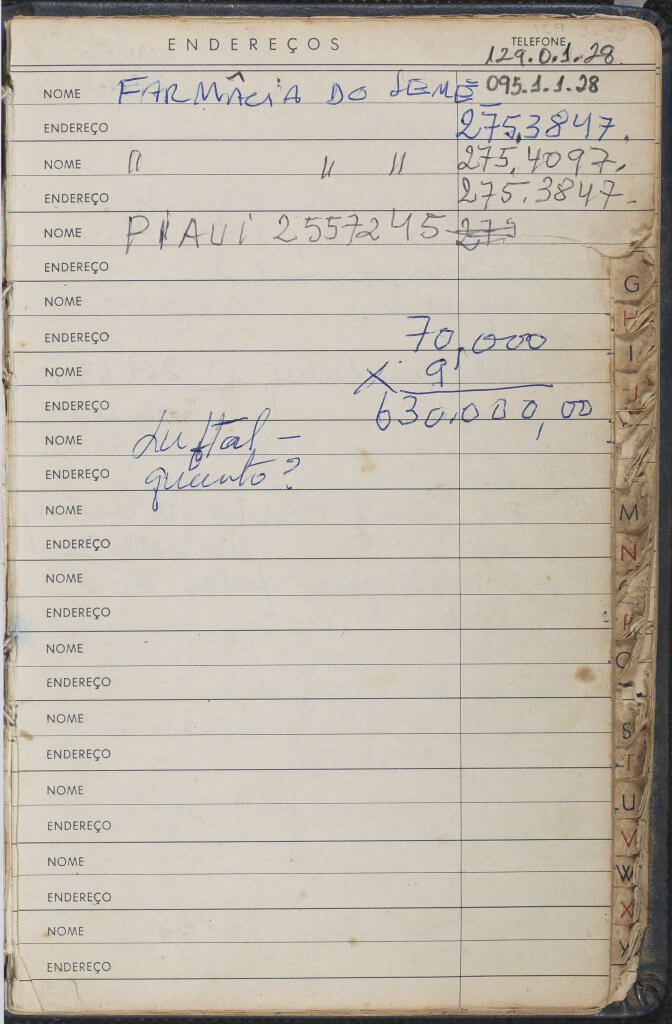 ENDEREÇOS TELEFONE
129.0.1.28
NOME FARMÂCIA DO LEME 095.1.1.28
ENDEREÇO 275.3847.
NOME " " " 275.4097.
ENDEREÇO 275.3847-
NOME PIAUI 2557245 275
ENDEREÇO
NOME
ENDEREÇO 70.000
NOME X 9
ENDEREÇO 630.000,00
NOME Luftal -
ENDEREÇO quanto?
NOME
ENDEREÇO
NOME
ENDEREÇO
NOME
ENDEREÇO
NOME
ENDEREÇO
NOME
ENDEREÇO
NOME
ENDEREÇO
NOME
ENDEREÇO
G
H
I
J
M
N
P
O
S
T
U
V
W
X
Y